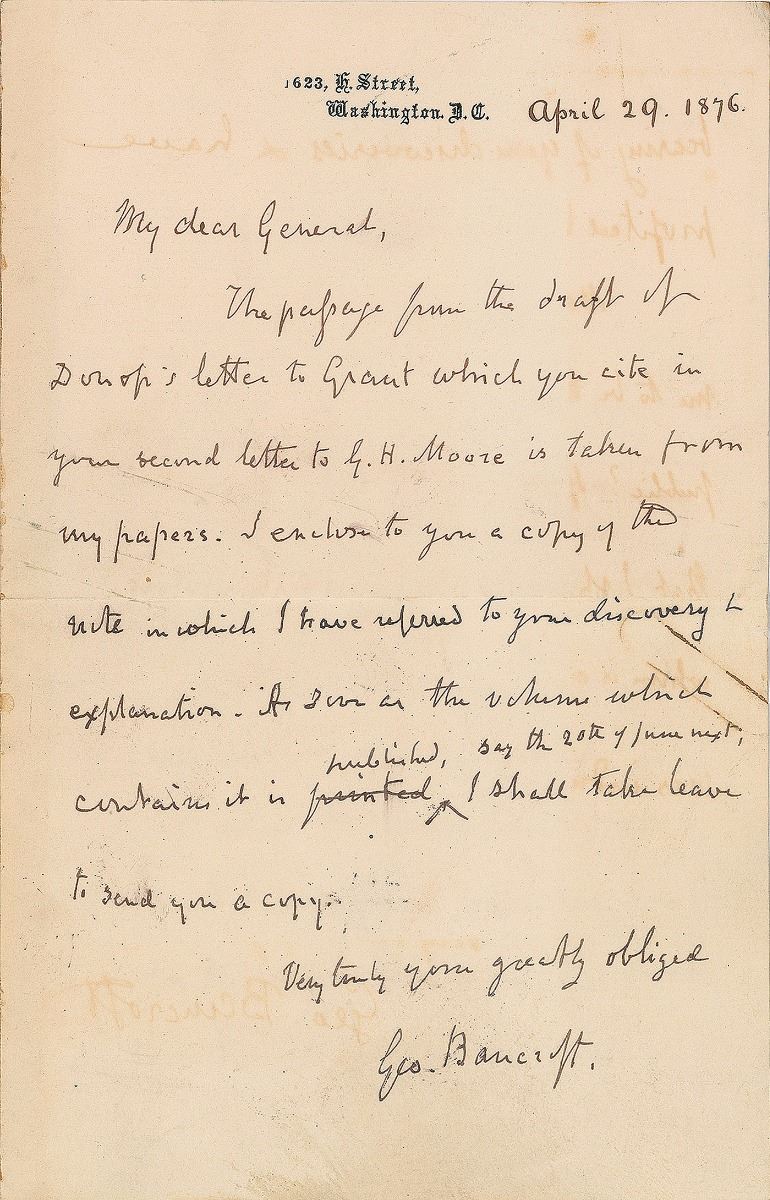 1623, H. Street,
Washington. D.C.
April 29. 1876.
My dear General,
The passage from the draft of
Donop's letter to Grant which you cite in
your second letter to G. H. Moore is taken from
my papers. I enclose to you a copy of the
note in which I have referred to your discovery &
explanation. As soon as the volume which
published, say the 20th of June next;
contains it is printed, I shall take leave
to send you a copy.
Very truly yours greatly obliged
Geo. Bancroft.